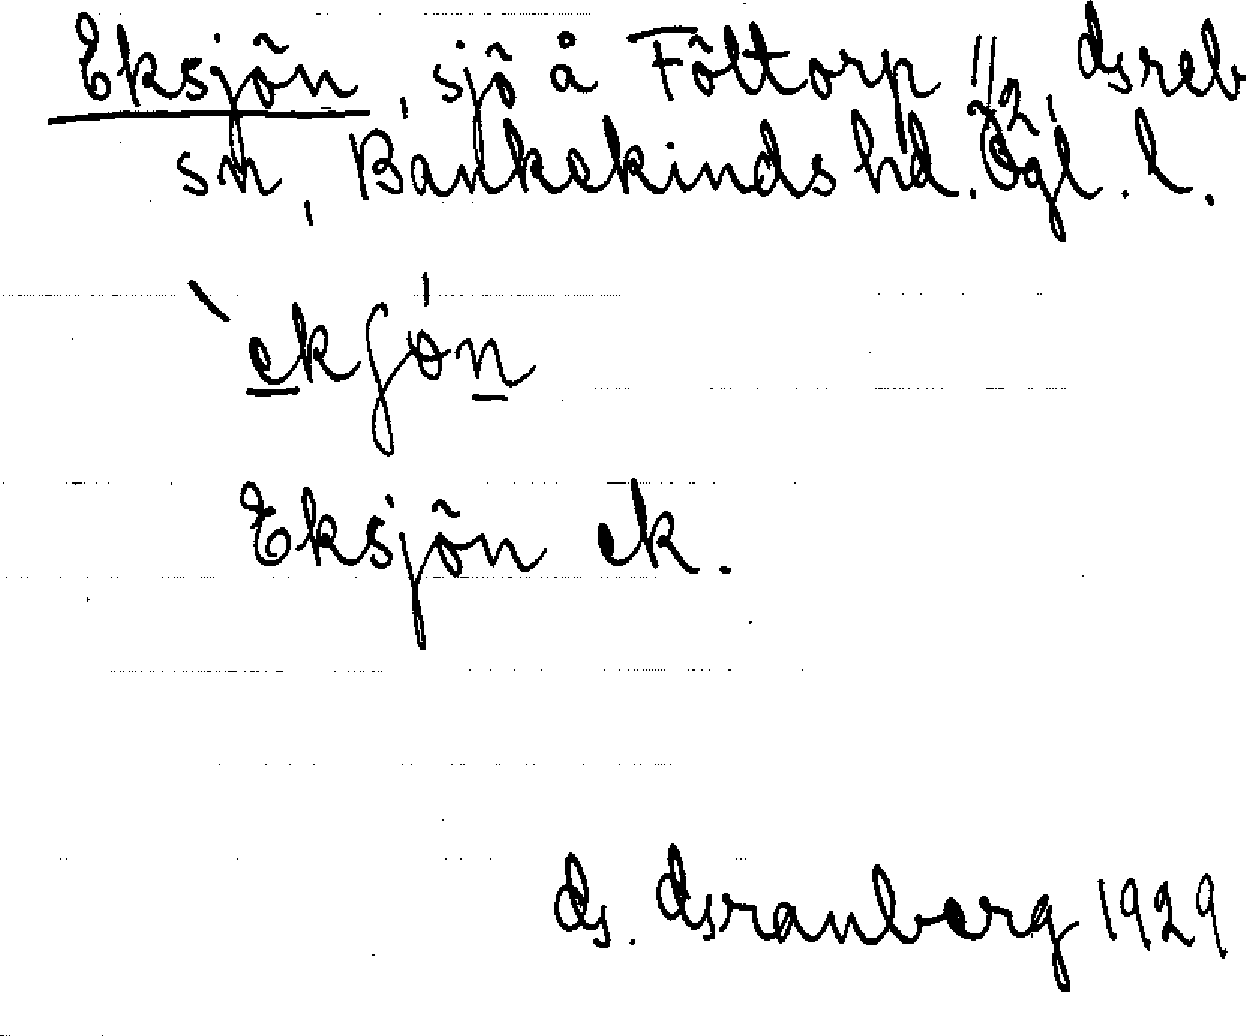 Eksjön, sjö åFöltorp 1/2, Greb
sn, Bankekinds hd. Ögl. l.
`ekʃǿn
Eksjön ek.
G. Granberg 1929